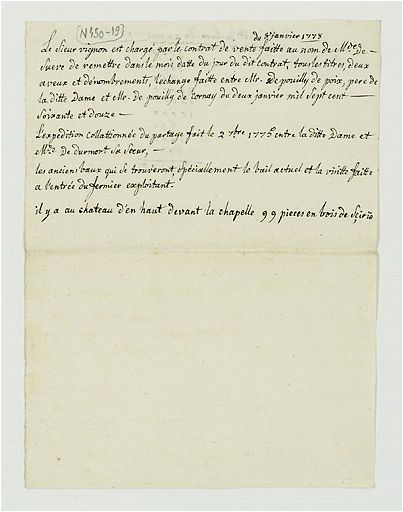 [N450-19]
du 3 janvier 1778
Le Sieur vignon est chargé par le contrat de vente faitte au nom de Mde De
Sueve de remettre dans le mois datte du jour du dit contrat, tous les titres, deux
aveux et dénombrements, lechange faitte entre Mr. De pouilly de poix, pere de
la ditte Dame et Mr. de pouilly de cornay du deux janvier mil Sept cent —
Soixante et douze —
L'expedition collationnée du partage fait le 2 7bre 1775 entre la ditte Dame et
De Sa Sœur, —
les anciens baux qui se trouveront Spécialement le bail actuel et la visitte faitte
a l'entrée du fermier exploitant.
il y a au chateau d'en haut devant la chapelle 99 pieces en bois de